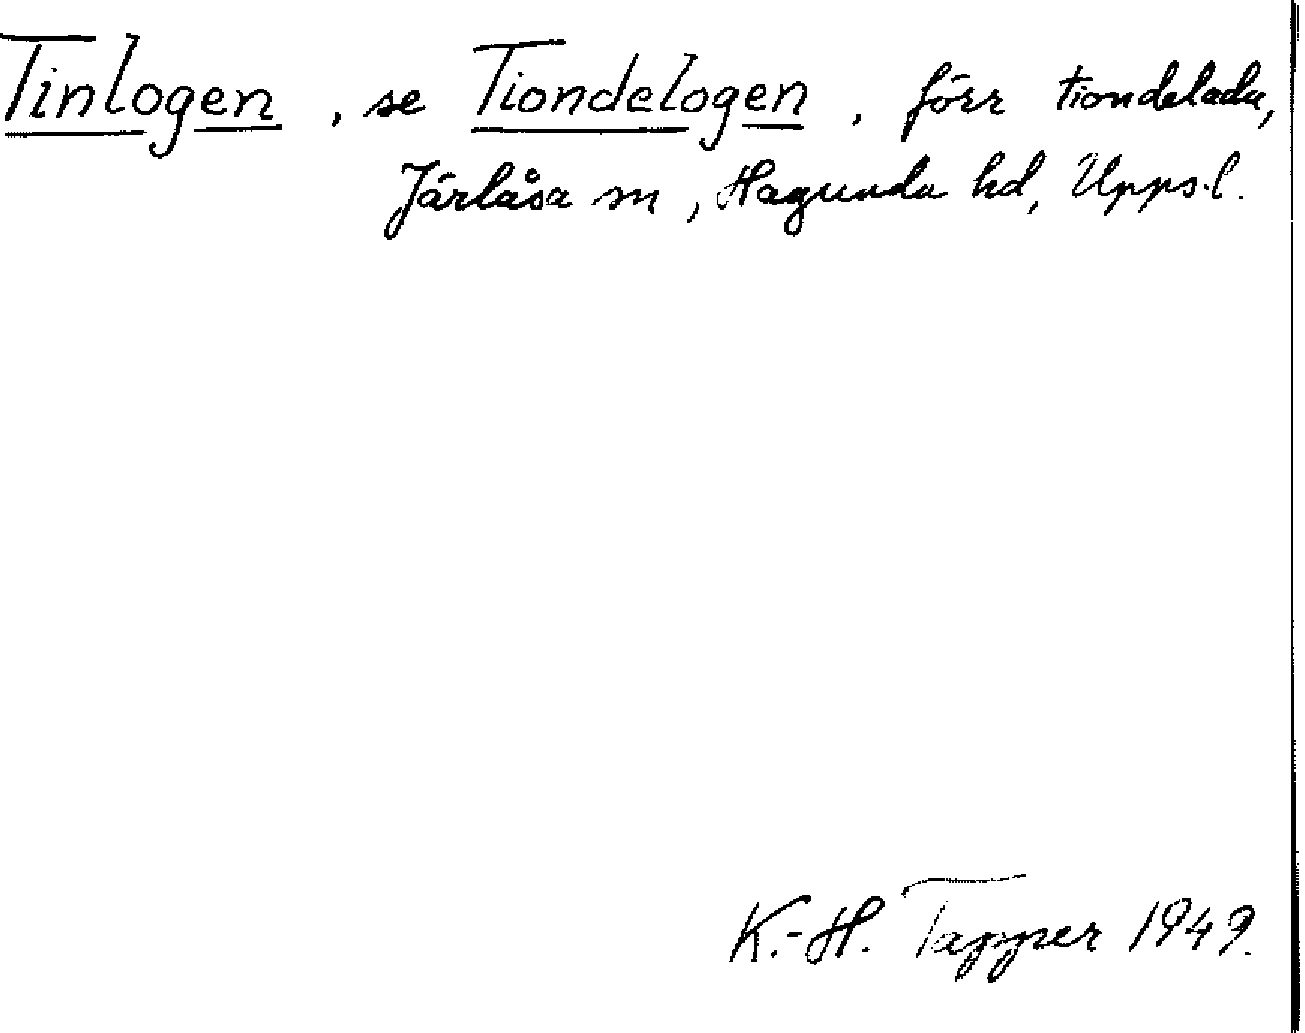 Tinlogen, se Tiondelogen, förr tiondelada,
Järlåsa sn, Hagunda hd, Upps.l.
K.-H. Tapper 1949.